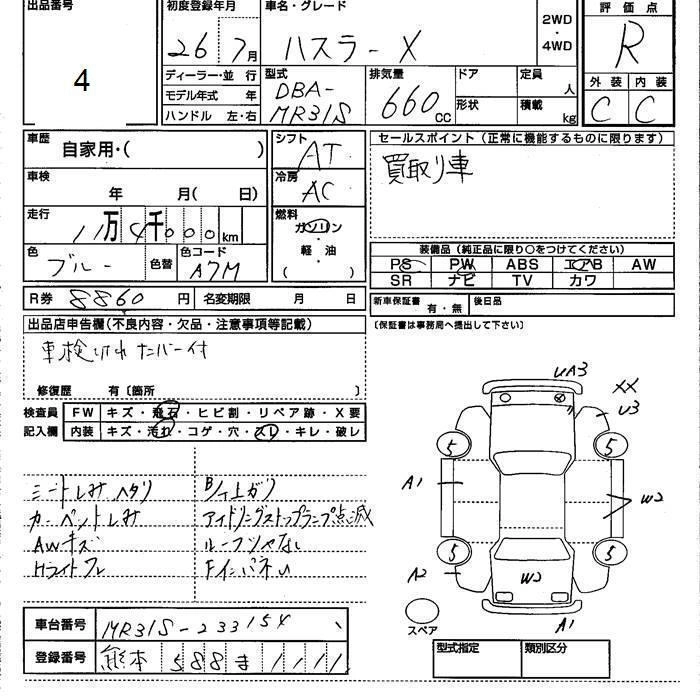 出品番号
4
初度登録年月
26 7月
車名・グレード
ハスラーX
2WD
・
4WD
評価点
R
外装 内装
C C
ディーラー・並 行
モデル年式 年
ハンドル 左・右
型式
DBA-
MR31S
排気量
660cc
ドア
形状
定員 人
積載 kg
車歴
自家用・( )
車検
年 月( 日)
走行
11万4千000km
色
ブルー
色替
色コード
A7M
シフト
AT
冷房
AC
燃料
ガソリン
・
軽・油
( )
セールスポイント(正常に機能するものに限ります)
買取り車
装備品(純正品に限り○をつけてください)
PS PW ABS エアB AW
SR ナビ TV カワ
R券 8860円
名変期限 月 日
新車保証書 有・無
後日品
(保証書は事務局へ提出して下さい)
出品店申告欄(不良内容・欠品・注意事項等記載)
車検切れ ナンバー付
修復歴 有〔箇所 〕
検査員
記入欄
FW キズ・飛石・ヒビ割・リペア跡・X要
内装 キズ・汚れ・コゲ・穴・スリ・キレ・破レ
シートしみ ヘタリ
カーペットしみ
AWキズ
Hライトクレ
B/イ上ガリ
アイドリングストップランプ点滅
UA3
XX
U3
5
5
A1
W2
5
5
A2
W2
A1
スペア
車台番号 MR31S-233154
登録番号 熊本 588 ま 1111
型式指定
類別区分